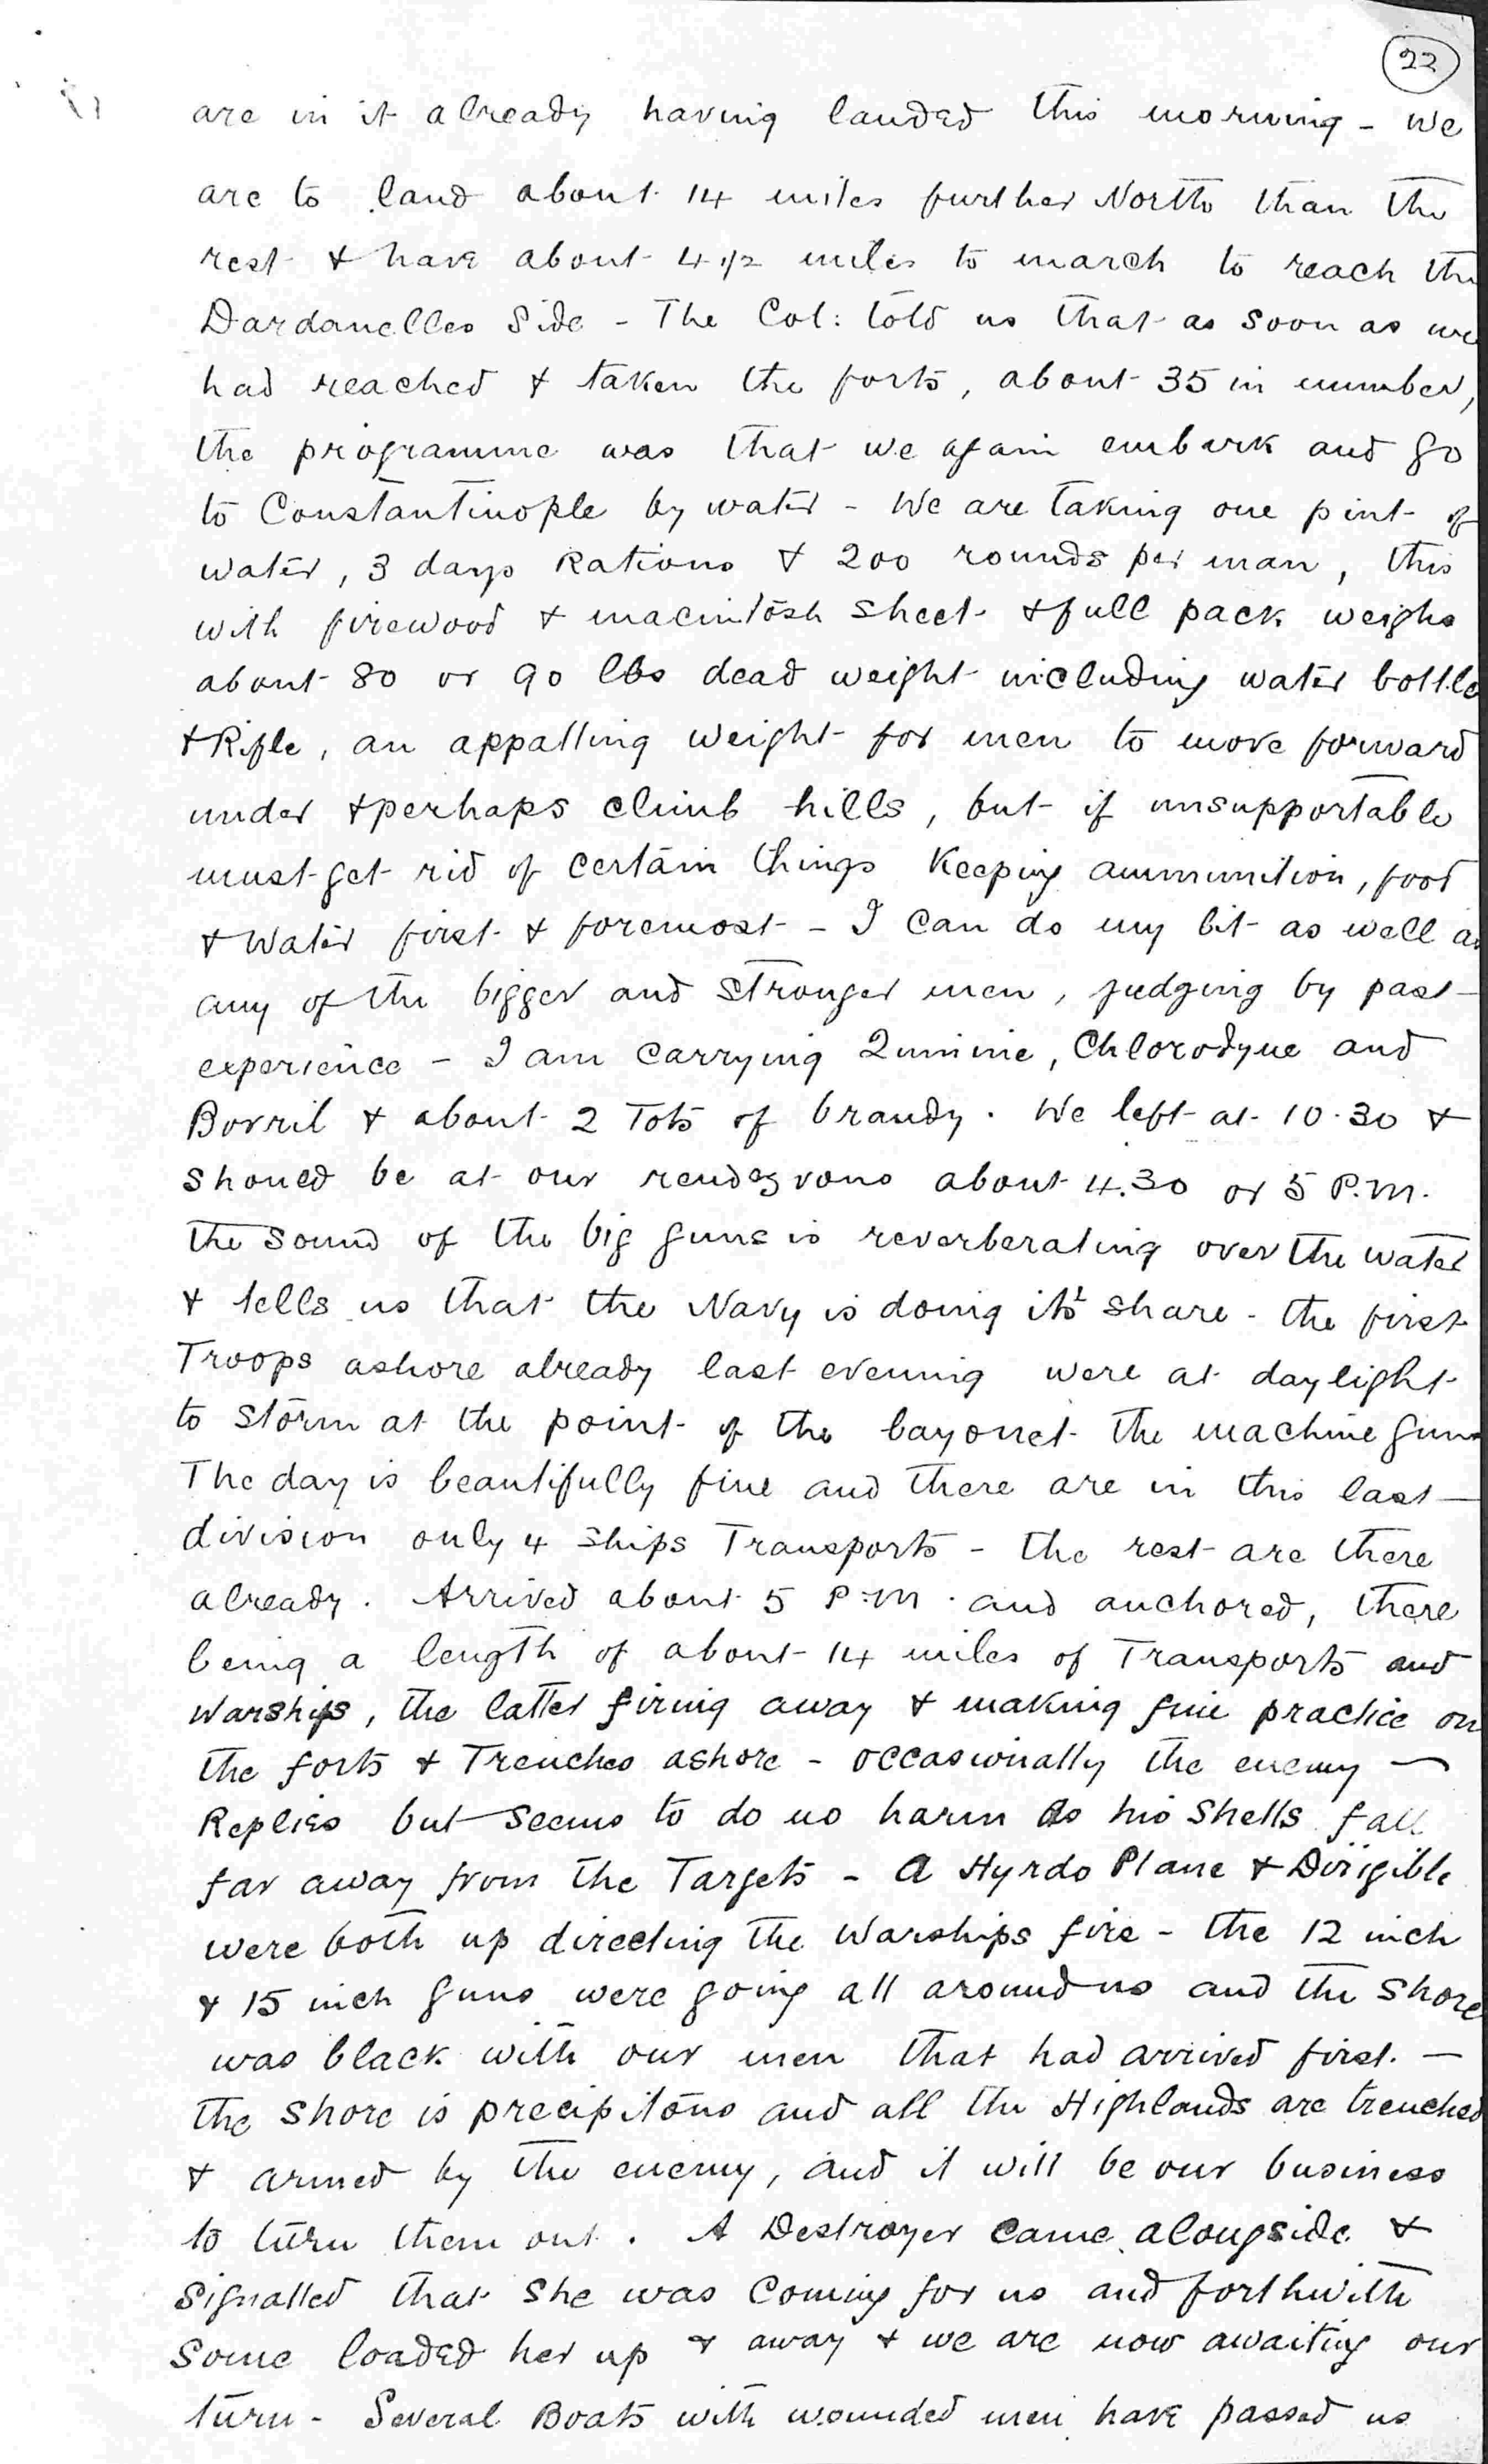 22
are in it already having landed this morning - We
are to land about 14 miles further North than the
rest & have about 4 1/2 miles to march to reach the
Dardanelles Side - The Col: told us that as soon as we
had reached & taken the forts, about 35 in number,
the programme was that we again embark and go
to Constantinople by water - We are taking one pint of
water, 3 days Rations & 200 rounds per man, this
with firewood & macintosh sheet & full pack weighs
about 80 or 90 lbs dead weight including water bottle
& Rifle, an appalling weight for men to move forward
under & perhaps climb hills, but if unsupportable
must get rid of certain things keeping ammunition, food
& Water first & foremost - I can do my bit as well as
any of the bigger and stronger men, judging by past
experience - I am carrying Quinine, Chlorodyne and
Bovril & about 2 Tots of brandy. We left at 10.30 &
should be at our rendezvous about 4.30 or 5 P.M.
the sound of the big guns is reverberating over the water
& tells us that the Navy is doing it's share - the first
Troops ashore already last evening were at daylight
to storm at the point of the bayonet the machine guns
The day is beautifully fine and there are in this last
division only 4 ships Transports - the rest are there
already. Arrived about 5 P.M. and anchored, there
being a length of about 14 miles of Transports and
Warships, the latter firing away & making fine practice on
the forts & Trenches ashore - occasionally the enemy -
Replies but seems to do no harm as his shells fall
far away from the Targets - A Hyrdo Plane & Dirigible
were both up directing the Warships fire - the 12 inch
& 15 inch guns were going all around us and the shore
was black with our men that had arrived first. -
the shore is precipitous and all the Highlands are trenched
& armed by the enemy, and it will be our business
to turn them out. A Destroyer came alongside &
signalled that she was coming for us and forthwith
some loaded her up & away & we are now awaiting our
turn - Several Boats with wounded men have passed us